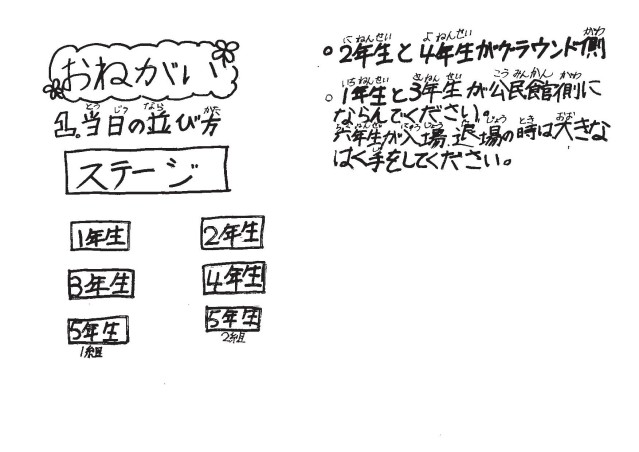 おねがい
1.当日の並び方
ステージ
1年生 2年生
3年生 4年生
5年生 5年生
1組 2組
○2年生と4年生がグラウンド側
○1年生と3年生が公民館側に
ならんでください。
六年生が入場、退場の時は大きな
はく手をしてください。